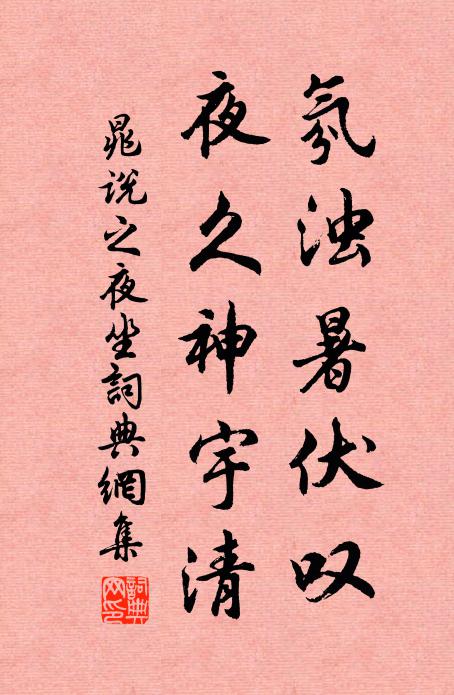 氛浊暑伏叹
夜久神宇清
晁说之夜坐詞典網集
詞典網印